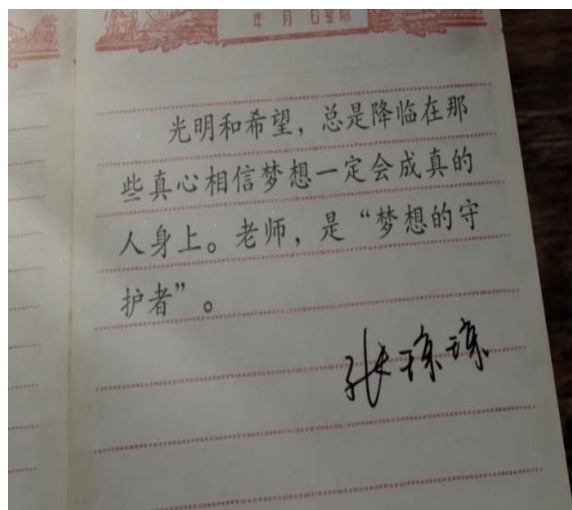 年 月 日星期
光明和希望，总是降临在那
些真心相信梦想一定会成真的
人身上。老师，是“梦想的守
护者”。
张琼琼